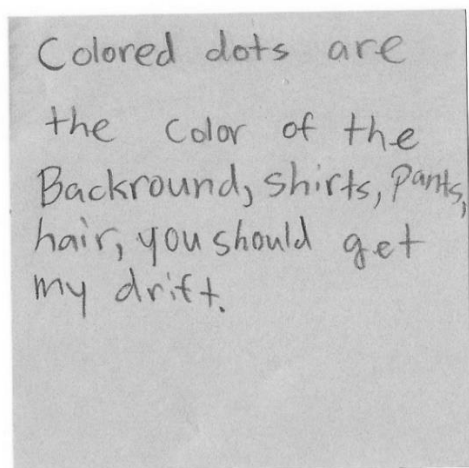 Colored dots are
the color of the
Backround, shirts, pants,
hair, you should get
my drift.